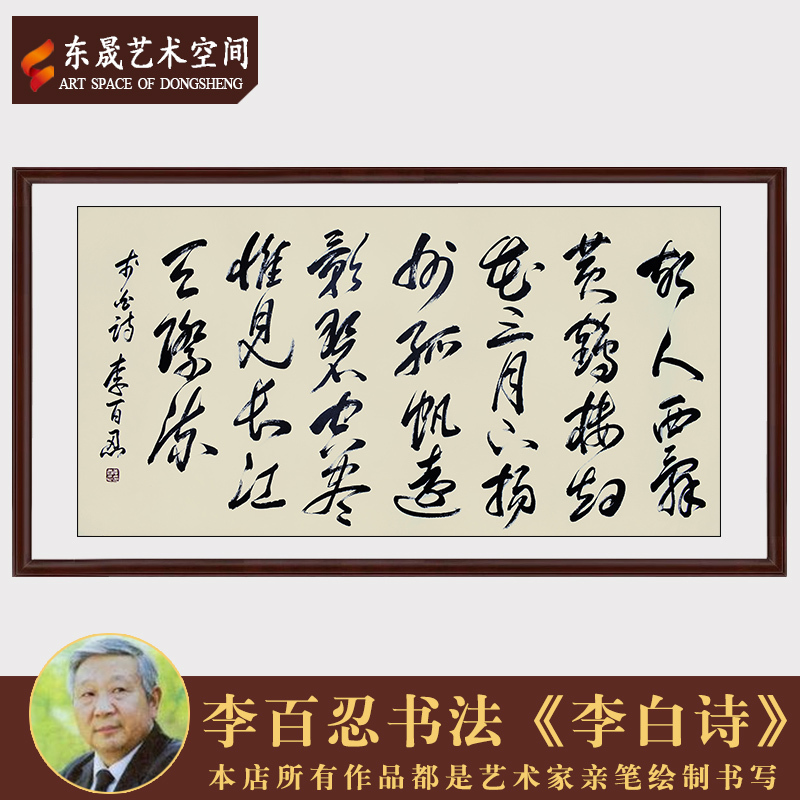 东晟艺术空间
ART SPACE OF DONGSHENG
故人西辭
黄鶴樓烟
花三月下揚
州孤帆遠
影碧空盡
惟見長江
天際流
李白詩 李百忍
李百忍书法《李白诗》
本店所有作品都是艺术家亲笔绘制书写